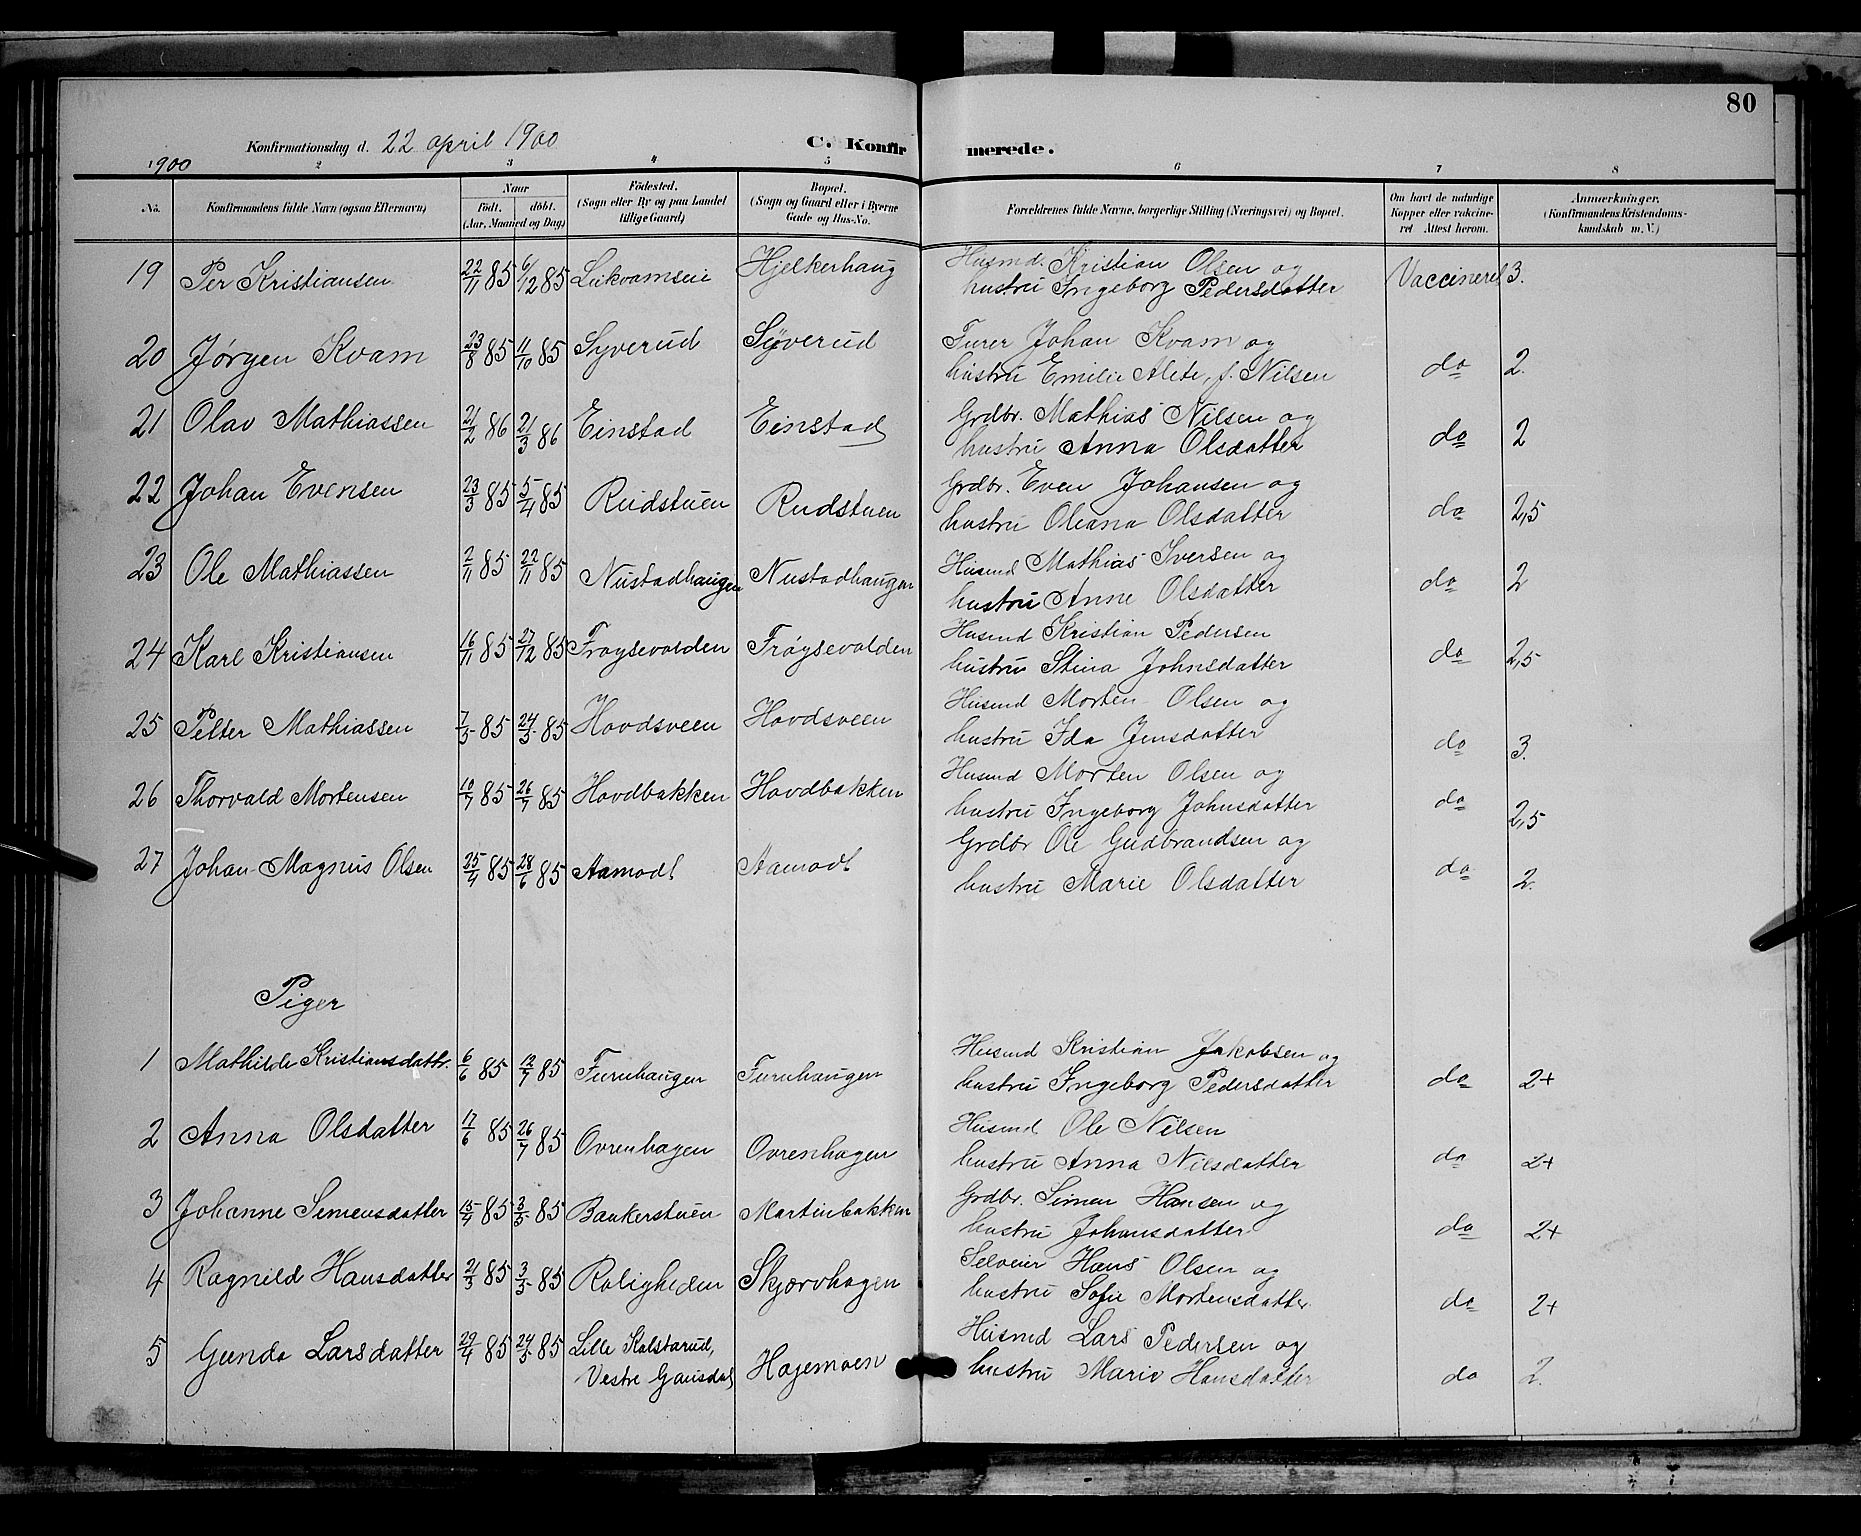 80
Konfirmationsdag d. 22 april 1900
C. Konfirmerede.
1900 2 3 4 5 6 7 8
No. Konfirmandens fulde Navn (ogsaa Efternavn) Naar født. døbt. (Aar, Maaned og Dag) Fødested. (Sogn eller By og paa Landet tillige Gaard) Bopæl. (Sogn og Gaard eller i Byerne Gade og Hus-No. Forældrenes fulde Navne, borgerlige Stilling (Næringsvei) og Bopæl. Om havt de naturlige Kopper eller vakcineret Attest herom. Anmærkninger. (Konfirmandens Kristendomskundskab m. V.)
19 Per Kristiansen 22/11 85 6/12 85 Hjelkerhaug Husmd. Kristian Olsen og
hustru Ingeborg Pedersdatter Vaccineret 3.
20 Jørgen Kvam 23/8 85 11/10 85 Syverud Syverud Furer Johan Kvam og
hustru Emilie Alete, f. Nilsen do 2.
21 Olav Mathiassen 21/2 86 21/3 86 Einstad Einstad Grdbr. Mathias Nilsen og
hustru Anna Olsdatter do 2
22 Johan Evensen 23/3 85 5/4 85 Rudstuen Rudstuen Grdbr. Even Johansen og
hustru Oliana Olsdatter do 2,5
23 Ole Mathiassen 2/11 85 22/11 85 Nustadhaugen Nustadhaugen Husmd Mathias Iversen og
hustru Anne Olsdatter do 2
24 Karl Kristiansen 16/11 85 27/12 85 Frøysevolden Frøysevolden Husmd Kristian Pedersen
hustru Stina Johnsdatter do 2,5
25 Petter Mathiassen 7/5 85 24/5 85 Hovdsveen Hovdsveen Husmd Morten Olsen og
hustru Ida Jensdatter do 3.
26 Thorvald Mortensen 10/7 85 26/7 85 Hovdbakken Hovdbakken Husmd Morten Olsen og
hustru Ingeborg Johnsdatter do 2,5
27 Johan Magnus Olsen 25/4 85 28/6 85 Aamodt Aamodt Grdbr Ole Gudbrandsen og
hustru Marie Olsdatter do 2.
Piger
1 Mathilde Kristiansdattr. 6/6 85 12/7 85 Furuhaugen Furuhaugen Husmd Kristian Jakobsen og
hustru Ingeborg Pedersdatter do 2+
2 Anna Olsdatter 17/6 85 26/7 85 Ovrenhagen Ovrenhagen Husmd Ole Nilsen
hustru Anna Nilsdatter do 2+
3 Johanne Semensdatter 15/4 85 3/5 85 Bankerstuen Martinbakken Grdbr. Simen Hansen og
hustru Johansdatter do 2+
4 Ragnild Hansdatter 21/3 85 3/5 85 Roligheden Skjørvhagen Selveier Hans Olsen og
hustru Sofie Mortensdatter do 2+
5 Gunda Larsdatter 29/4 85 24/5 85 Lille Kalstarud,
Vestre Gausdal Hagemoen Husmd Lars Pedersen og
hustru Marie Hansdatter do 2.